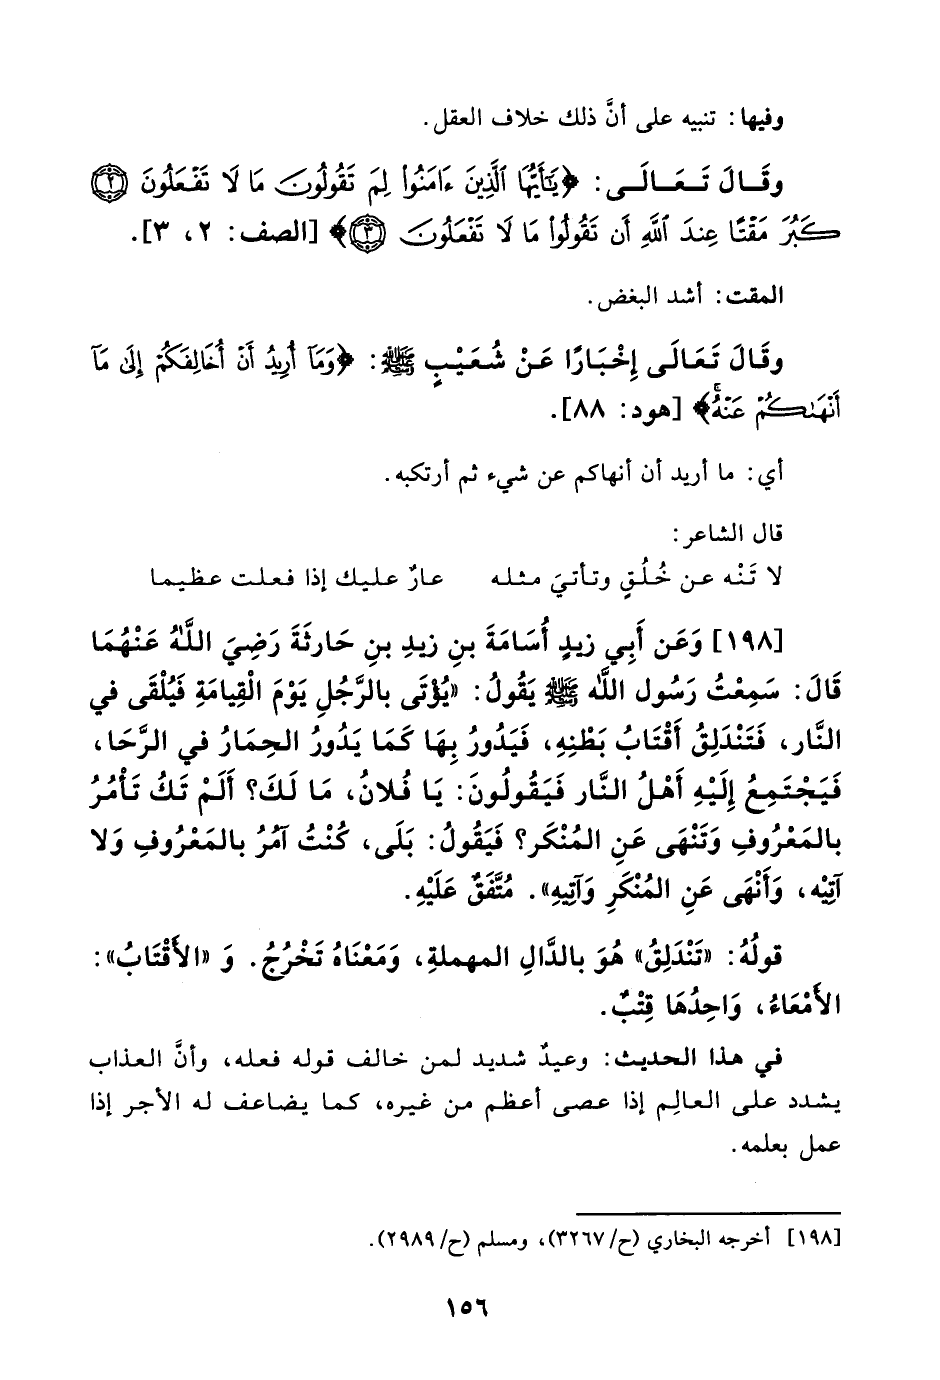 وفيها: تنبيه على أنَّ ذلك خلاف العقل.
وقَالَ تَعَالَى: ﴿يَٰٓأَيُّهَا ٱلَّذِينَ ءَامَنُوا۟ لِمَ تَقُولُونَ مَا لَا تَفْعَلُونَ ۝٢
كَبُرَ مَقْتًا عِندَ ٱللَّهِ أَن تَقُولُوا۟ مَا لَا تَفْعَلُونَ ۝٣﴾ [الصف: ٢، ٣].
المقت: أشد البغض.
وقَالَ تَعَالَى إِخْبَارًا عَنْ شُعَيْبٍ ﷺ: ﴿وَمَآ أُرِيدُ أَنْ أُخَالِفَكُمْ إِلَىٰ مَآ
أَنْهَىٰكُمْ عَنْهُ ۚ﴾ [هود: ٨٨].
أي: ما أريد أن أنهاكم عن شيء ثم أرتكبه.
قال الشاعر:
لا تَنْه عن خُلُقٍ وتأتيَ مثله عارٌ عليك إذا فعلت عظيما
[١٩٨] وَعَن أَبِي زيدٍ أُسَامَةَ بنِ زيدِ بنِ حَارثَةَ رَضِيَ اللَّهُ عَنْهُمَا
قَالَ: سَمِعْتُ رَسُول اللَّه ﷺ يَقُولُ: «يُؤْتَى بالرَّجُلِ يَوْمَ الْقِيامَةِ فَيُلْقَى في
النَّار، فَتَنْدَلِقُ أَقْتَابُ بَطْنِهِ، فَيَدُورُ بِهَا كَمَا يَدُورُ الحِمَارُ في الرَّحَا،
فَيَجْتَمِعُ إِلَيْهِ أَهْلُ النَّار فَيَقُولُونَ: يَا فُلانُ، مَا لَكَ؟ أَلَمْ تَكُ تَأْمُرُ
بالمَعْرُوفِ وَتَنْهَى عَنِ المُنْكَر؟ فَيَقُولُ: بَلَى، كُنْتُ آمُرُ بالمَعْرُوفِ وَلا
آتِيْه، وَأَنْهَى عَنِ المُنْكَرِ وَآتِيهِ». مُتَّفَقٌ عَلَيْهِ.
قولُهُ: «تَنْدَلِقُ» هُوَ بالدَّالِ المهملةِ، وَمَعْنَاهُ تَخْرُجُ. وَ «الأَقْتَابُ»:
الأَمْعَاءُ، وَاحِدُهَا قِتْبٌ.
في هذا الحديث: وعيدٌ شديد لمن خالف قوله فعله، وأنَّ العذاب
يشدد على العالِم إذا عصى أعظم من غيره، كما يضاعف له الأجر إذا
عمل بعلمه.
[١٩٨] أخرجه البخاري (ح/٣٢٦٧)، ومسلم (ح/٢٩٨٩).
١٥٦